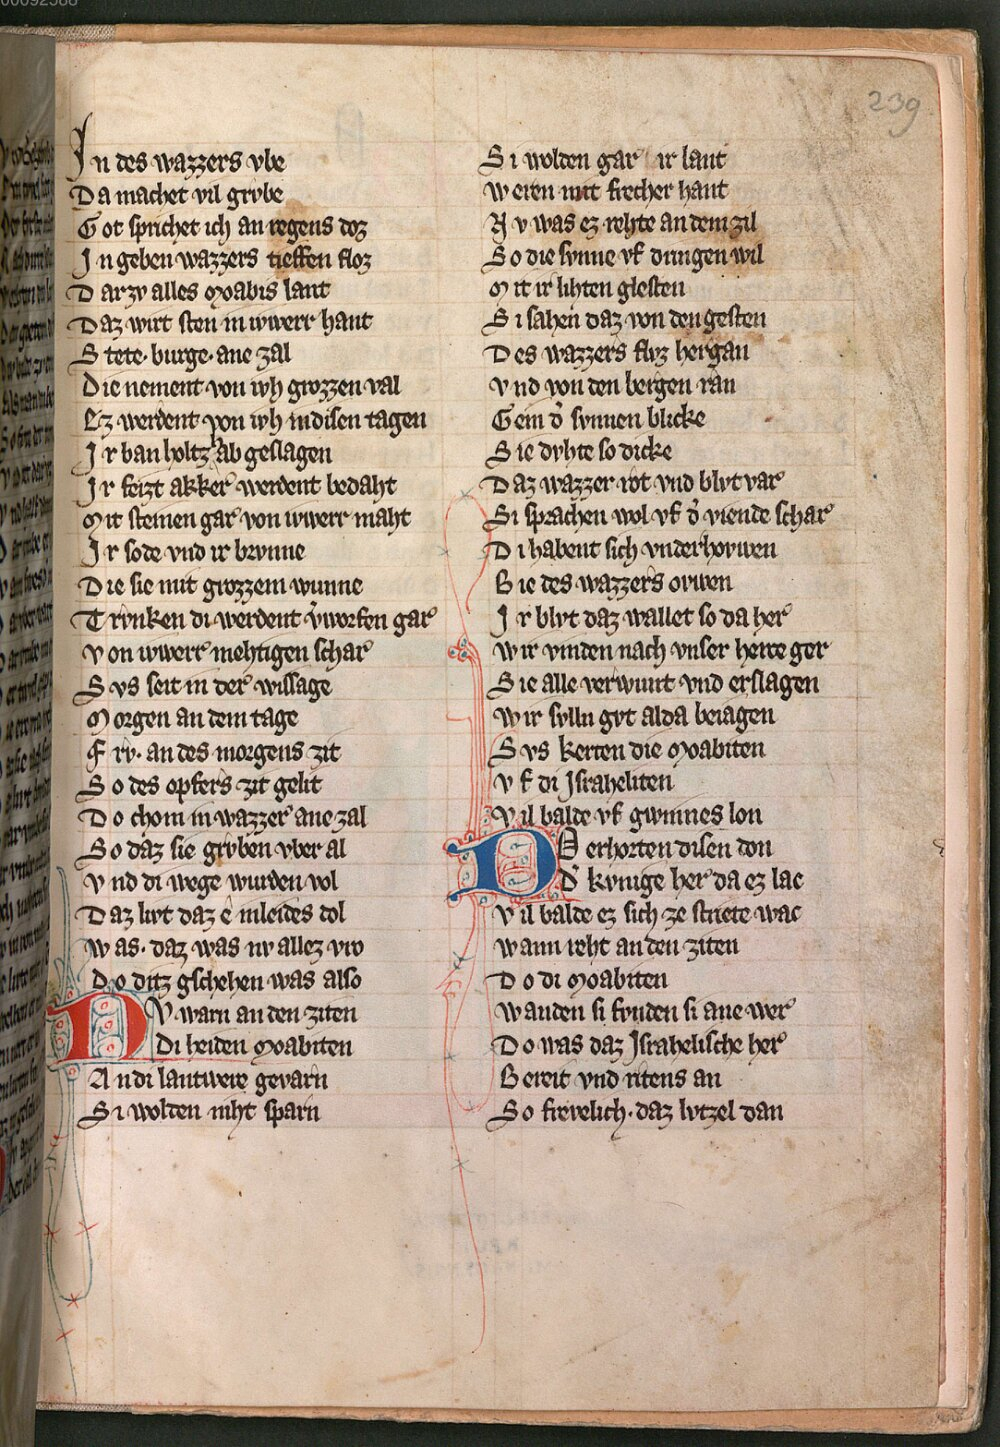 00092588
239
In des wazzers vbe
Da machet vil grvbe
Got sprichet ich an regens doz
In geben wazzers tieffen floz
Darzv alles moabis lant
Daz wirt sten in iwerr hant
Stete· burge· ane zal
Die nement von ivh grozzen val
Ez werdent von ivh in disen tagen
Ir ban holtz ab geslagen
Ir feizt akker werdent bedaht
Mit steinen gar von iwerr maht
Ir sode vnd ir brvnne
Die sie mit grozzem wunne
Trvnken di werdent v̾worfen gar
Von iwerr mehtigen schar
Svs seit in der wissage
Morgen an dem tage
Frv· an des morgens zit
So des opfers zit gelit
Do chom in wazzer ane zal
So daz sie grvben vber al
Vnd di wege wurden vol
Daz livt daz e in leides dol
Was· daz was nv allez vro
Do ditz gschehen was also
Nv warn an den ziten
Di heiden moabiten
An di lantwere gevarn
Si wolden niht sparn
Si wolden gar ir lant
Weren mit frecher hant
Nv was ez rehte an dem zil
So die svnne vf dringen wil
Mit ir lihten glesten
Si sahen daz von den gesten
Des wazzers floz hergan
Vnd von den bergen ran
Gein d̾ svnnen blicke
Sie dvhte so dicke
Daz wazzer rot vnd blvt var
Si sprachen wol vf d̾ viende schar
Di habent sich vnderhowen
Bie des wazzers owen
Ir blvt daz wallet so da her
Wir vinden nach vnser herre ger
Sie alle verwunt vnd erslagen
Wir svlln gvt alda beiagen
Svs kerten die moabiten
Vf di Israheliten
Vil balde vf gwinnes lon
Do erhorten disen don
D̾ kvnige her da ez lac
Vil balde ez sich ze striete wac
Wann reht an den ziten
Do di moabiten
Wanden si fvnden si ane wer
Do was daz Israhelische her
Bereit vnd ritens an
So frevelich· daz lvtzel dan